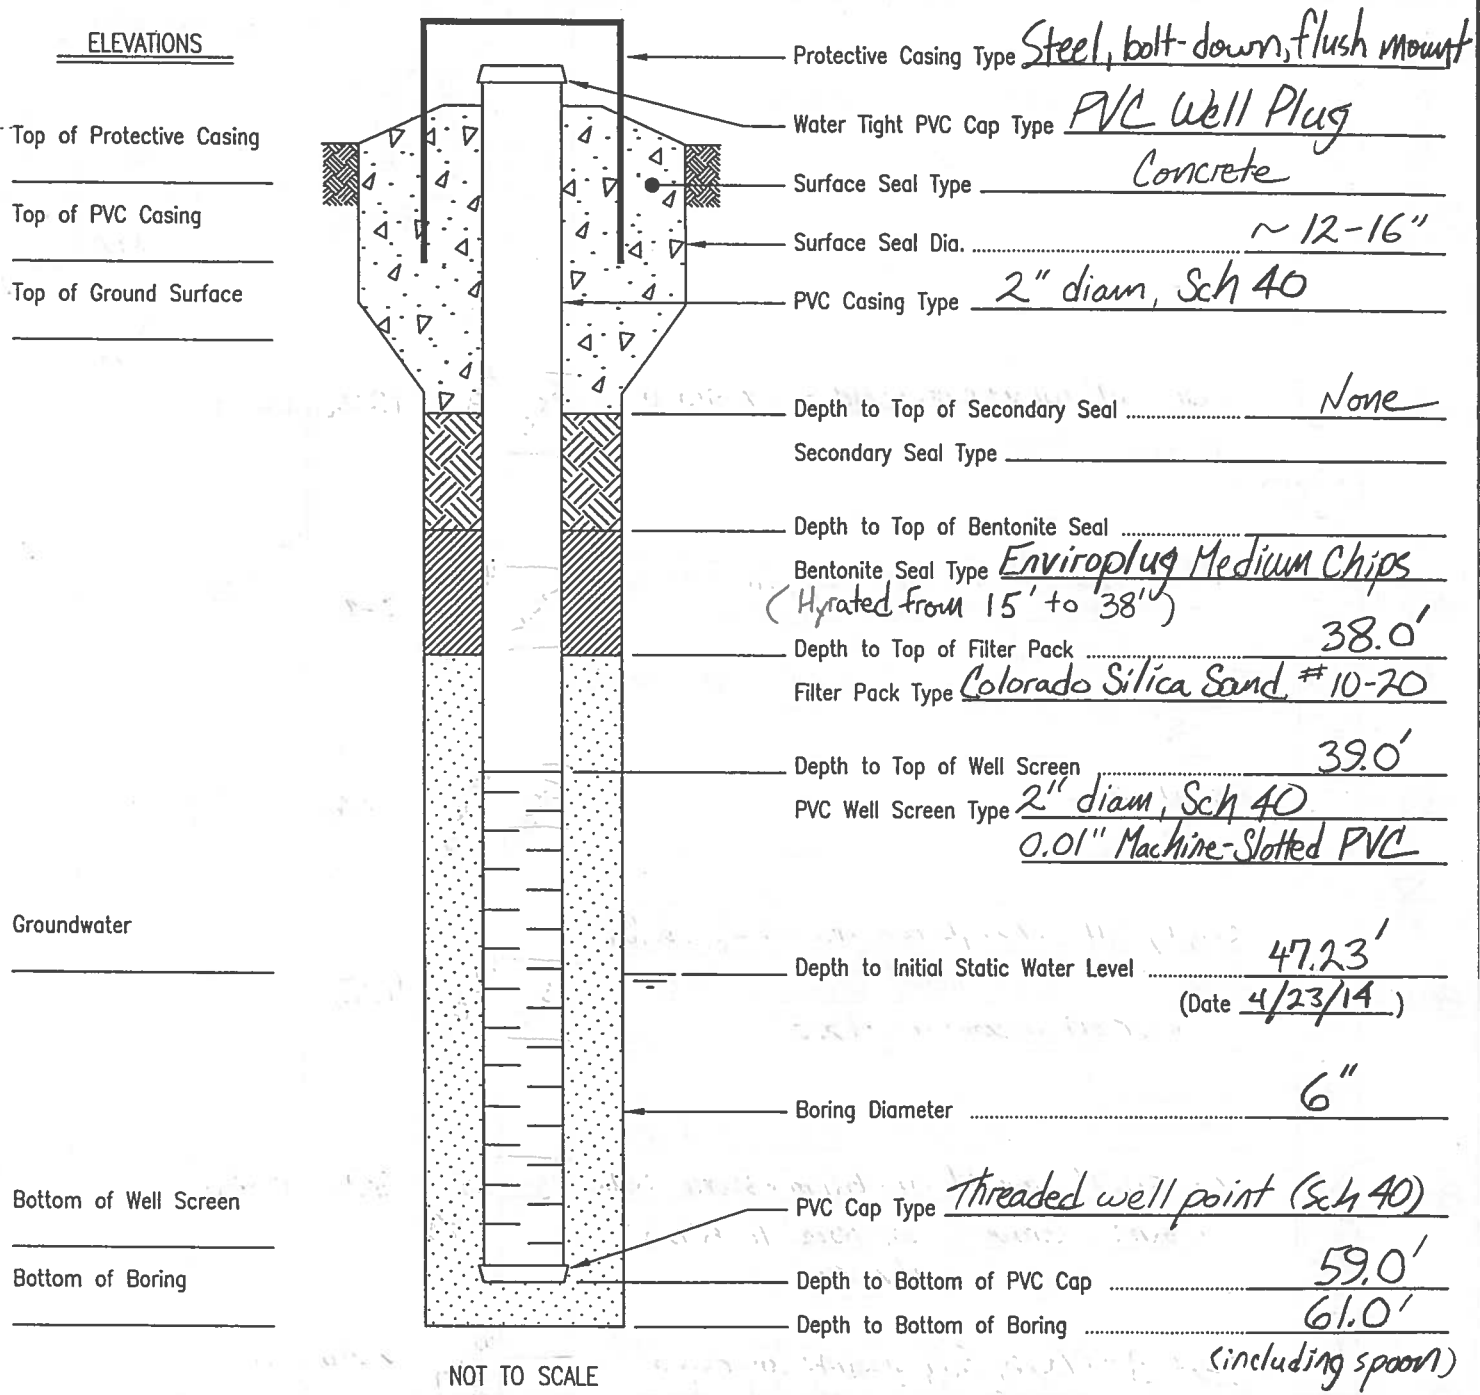 ELEVATIONS
Top of Protective Casing
Top of PVC Casing
Top of Ground Surface
Groundwater
Bottom of Well Screen
Bottom of Boring
Protective Casing Type Steel, bolt-down, flush mount
Water Tight PVC Cap Type PVC Well Plug
Surface Seal Type Concrete
Surface Seal Dia. ~ 12-16"
PVC Casing Type 2" diam, Sch 40
Depth to Top of Secondary Seal None
Secondary Seal Type
Depth to Top of Bentonite Seal
Bentonite Seal Type Enviroplug Medium Chips
(Hyrated from 15' to 38')
Depth to Top of Filter Pack 38.0'
Filter Pack Type Colorado Silica Sand #10-20
Depth to Top of Well Screen 39.0'
PVC Well Screen Type 2" diam, Sch 40
0.01" Machine-Slotted PVC
Depth to Initial Static Water Level 47.23'
(Date 4/23/14)
Boring Diameter 6"
PVC Cap Type Threaded well point (Sch 40)
Depth to Bottom of PVC Cap 59.0'
Depth to Bottom of Boring 61.0'
(including spoon)
NOT TO SCALE